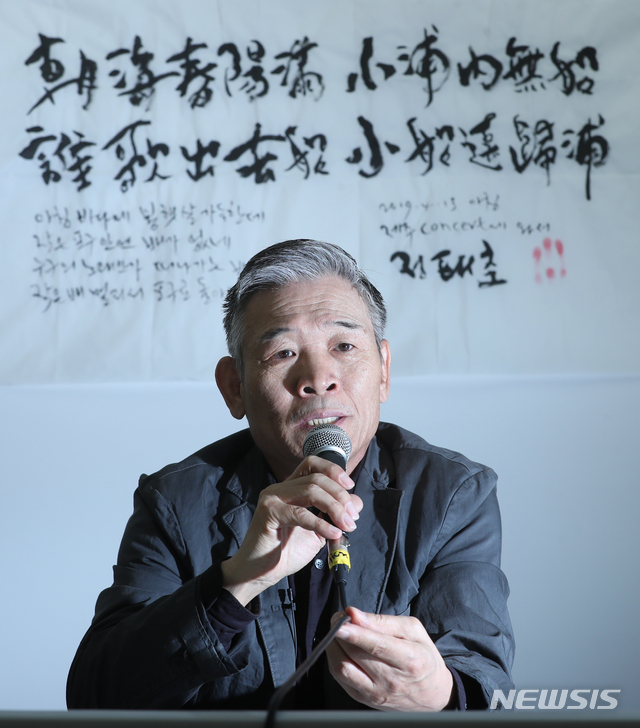 朝海春陽滿 小浦內無船
誰歌出去船 小船遠歸浦
아침 바다에 봄 햇살 가득한데
작은 포구 안엔 배가 없네
작은 배 멀리서 포구로 돌아
2019. 4. 13 아침
제주 concert에 와서
정태춘
NEWSIS